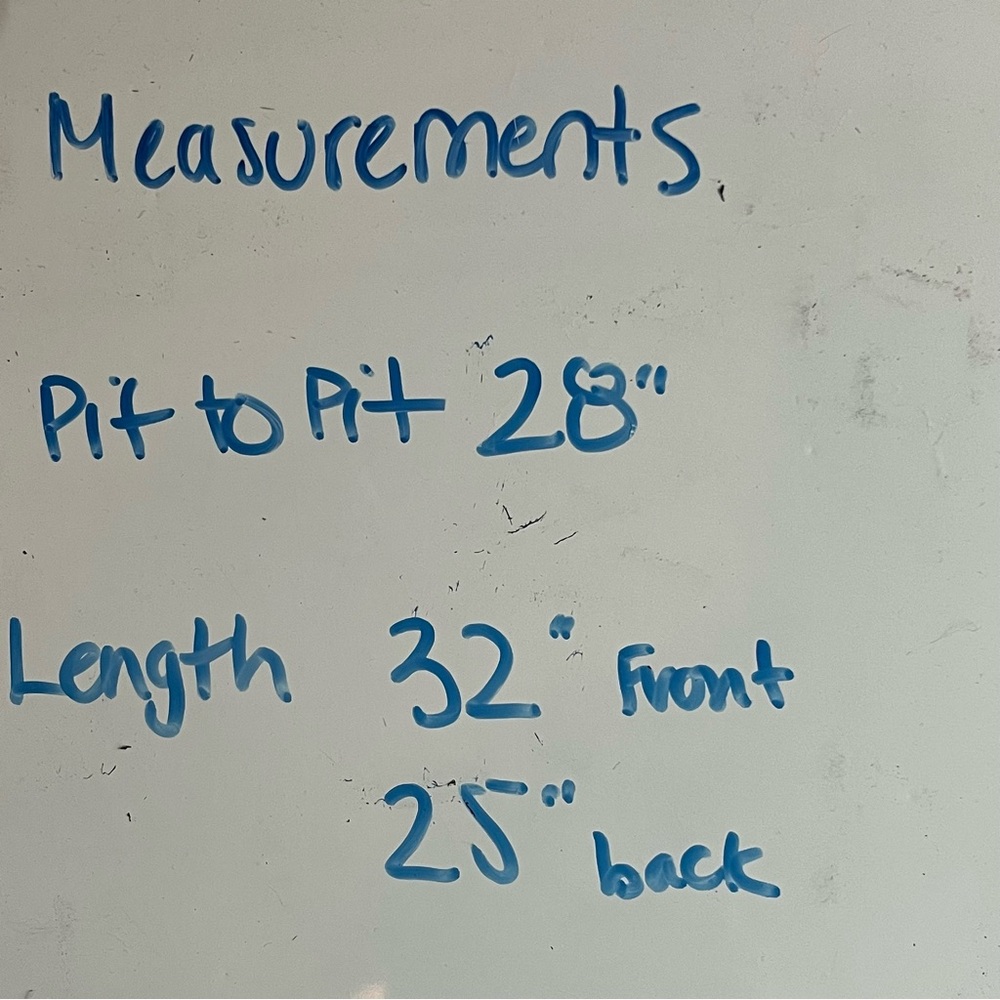 Measurements
Pit to Pit 28"
Length 32" Front
25" back